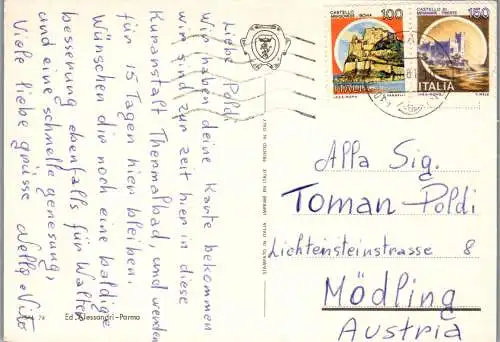 Liebe Poldi
Wir haben deine Karte bekommen
wir sind zur zeit hier in diese
Kuranstalt Thermalbad, und werden
für 15 Tagen hier bleiben.
Wünschen dir noch eine baldige
besserung ebenfalls für Walter
und eine schnelle genesung,
Viele liebe grüsse Nelly Nito
Ed. Alessandri-Parma
STAMPATO IN ITALIA IMPRIMÉ EN ITALIE PRINTED IN ITALY
CASTELLO
ROMA
100
ITALIA
CASTELLO DI
MIRAMARE TRIESTE
150
ITALIA
Alla Sig.
Toman Poldi
Lichtensteinstrasse 8
Mödling
Austria